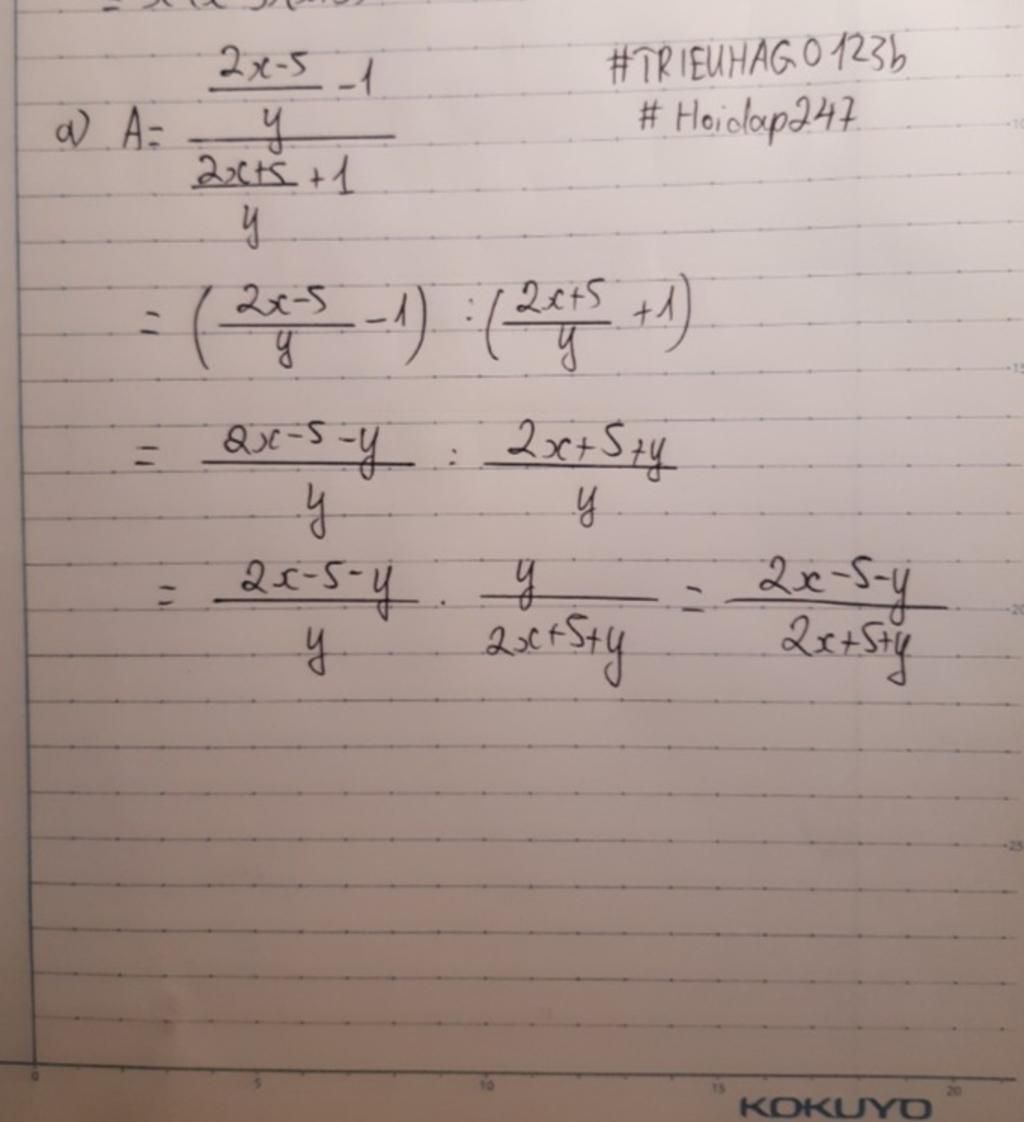 a) A = \frac{\frac{2x-5}{y} - 1}{\frac{2x+5}{y} + 1}
#TRIEUHAGO123b
# Hoidap247
= ( \frac{2x-5}{y} - 1 ) : ( \frac{2x+5}{y} + 1 )
= \frac{2x-5-y}{y} : \frac{2x+5+y}{y}
= \frac{2x-5-y}{y} . \frac{y}{2x+5+y} = \frac{2x-5-y}{2x+5+y}
10
15
20
25
0 5 10 15 20
KOKUYO